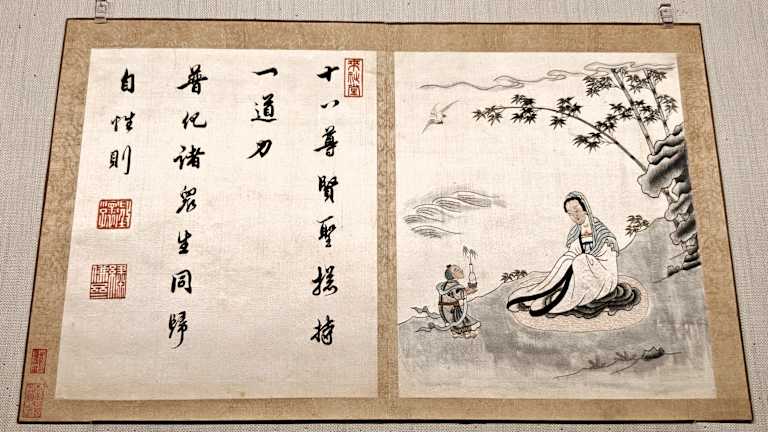 十八尊賢聖操持
一道力
普化諸衆生同歸
自性則